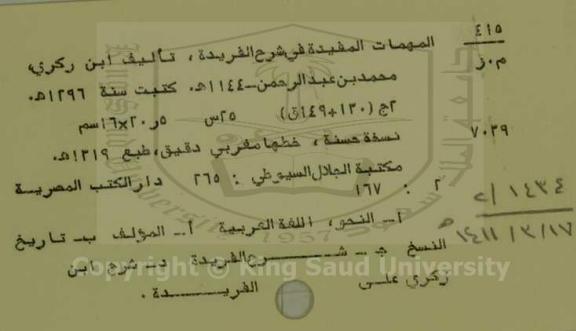 ٤١٥
م٠ز
المهمات المفيدة في شرح الفريدة ، تأليف ابن زكري،
محمد بن عبدالرحمن -١١٤٤هـ. كتبت سنة ١٢٩٦هـ
٢ج (١٣٠+١٤٩ق) ٢٥س ٢٠٫٥×١٦سم
٧٠٣٩
نسخة حسنة ، خطها مغربي دقيق، طبع ١٣١٩هـ.
مكتبة الجلال السيوطي : ٢٦٥ دار الكتب المصرية
٢ : ١٦٧
١٤٣٤ / ٢
١٤١١/٣/١٧هـ
أ- النحو، اللغة العربية أ- المؤلف ب- تاريخ
النسخ ج- شرح الفريدة د- شرح ابن
زكري على الفريدة .
Copyright © King Saud University
1957